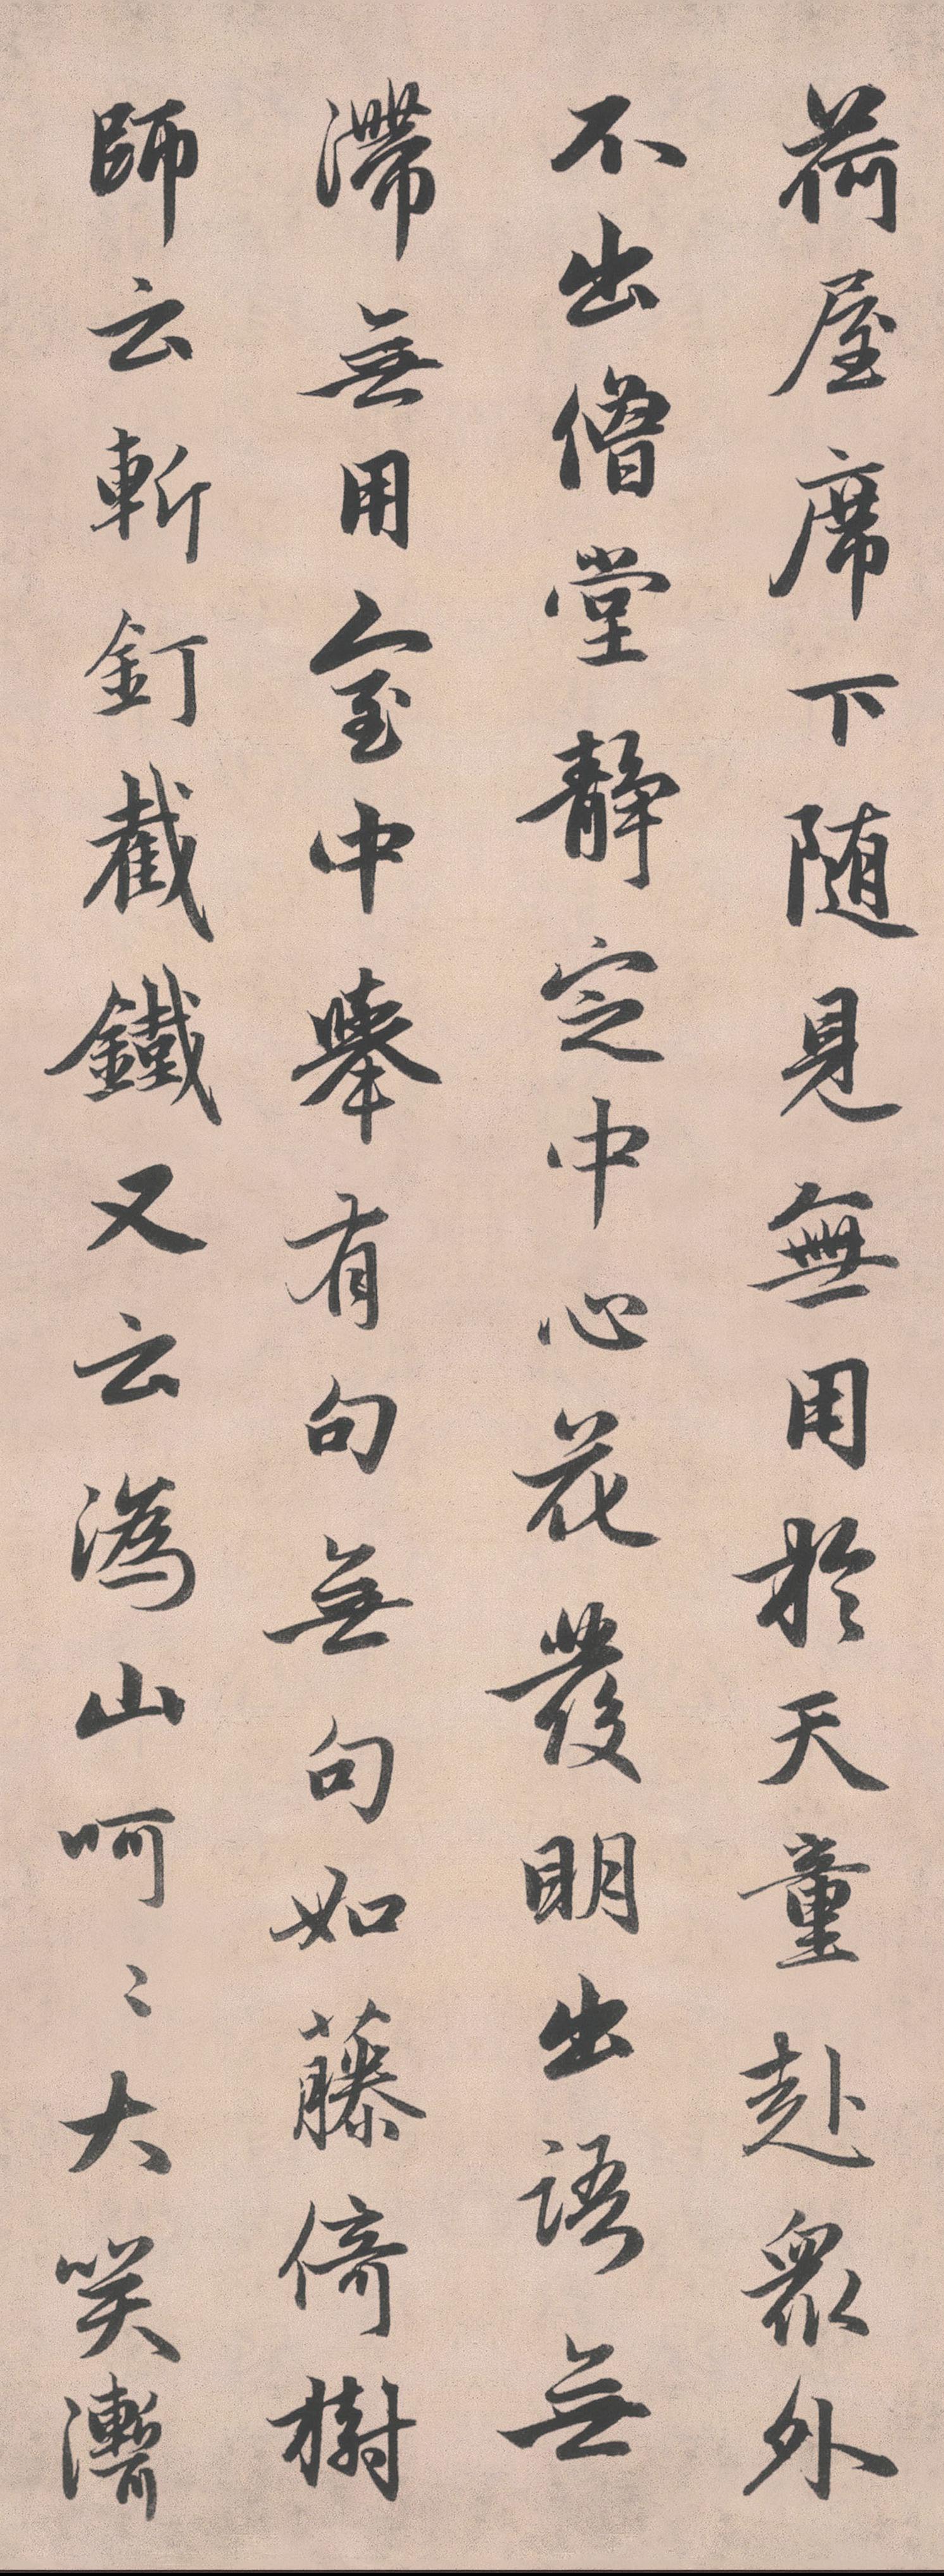 荷屋席下随見無用於天童赴衆外
不出僧堂靜定中心花發明出語無
滯無用室中舉有句無句如藤倚樹
師云斬釘截鐵又云溈山呵〻大笑